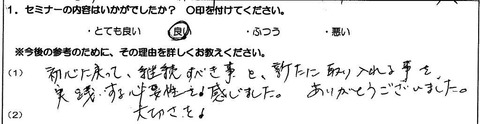 1. セミナーの内容はいかがでしたか? ○印を付けてください。
・とても良い ・良い ・ふつう ・悪い
※今後の参考のために、その理由を詳しくお教えください。
(1) 初心に戻って、継続すべき事と、新たに取り入れる事を、
実践する必要性を感じました。 ありがとうございました。
(2) 大切さを!